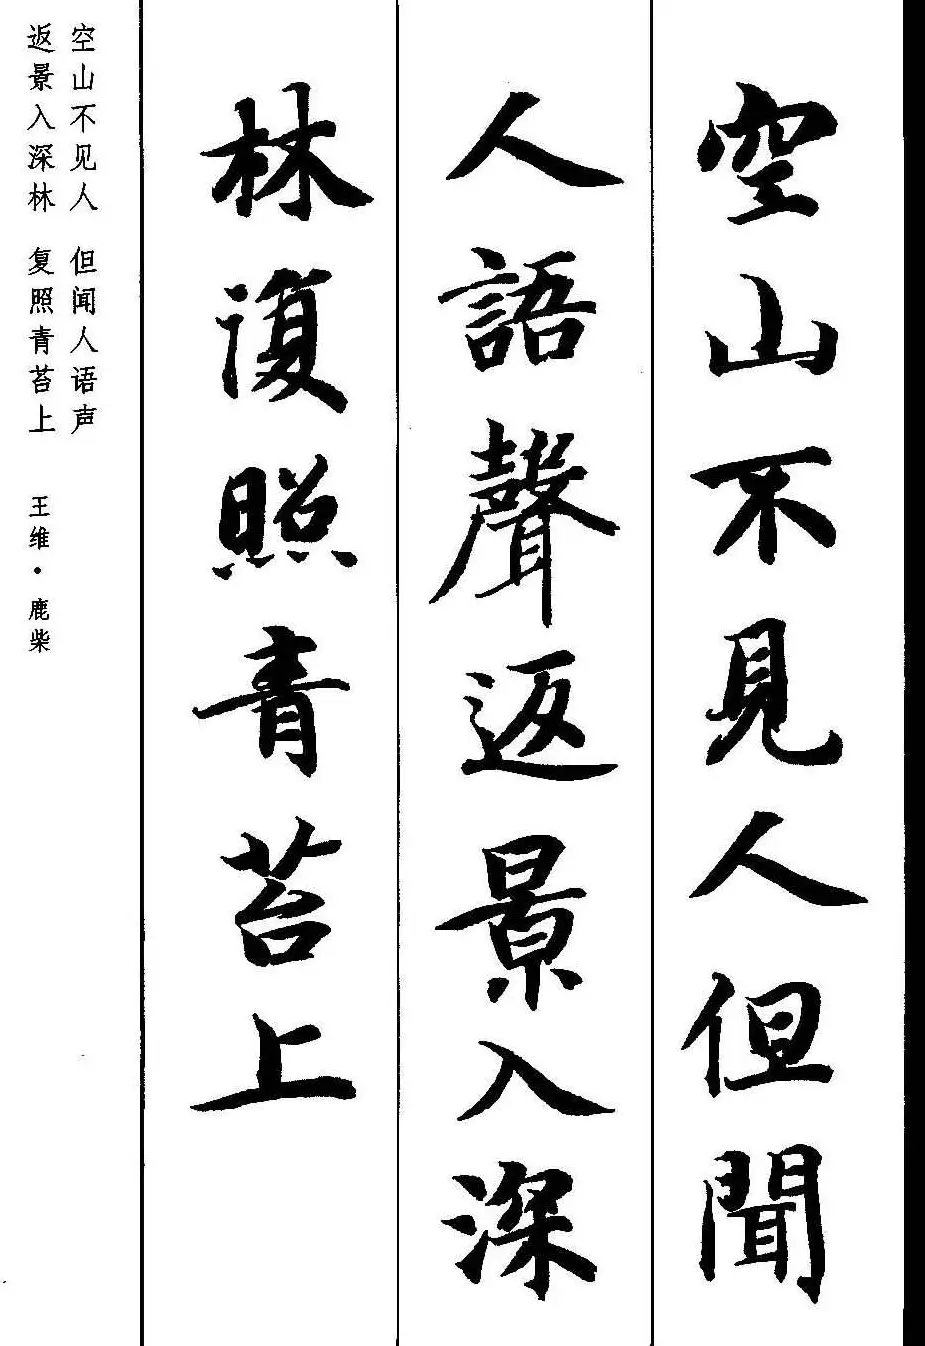 空山不見人但聞
人語聲返景入深
林復照青苔上
空山不见人 但闻人语声
返景入深林 复照青苔上
王维·鹿柴